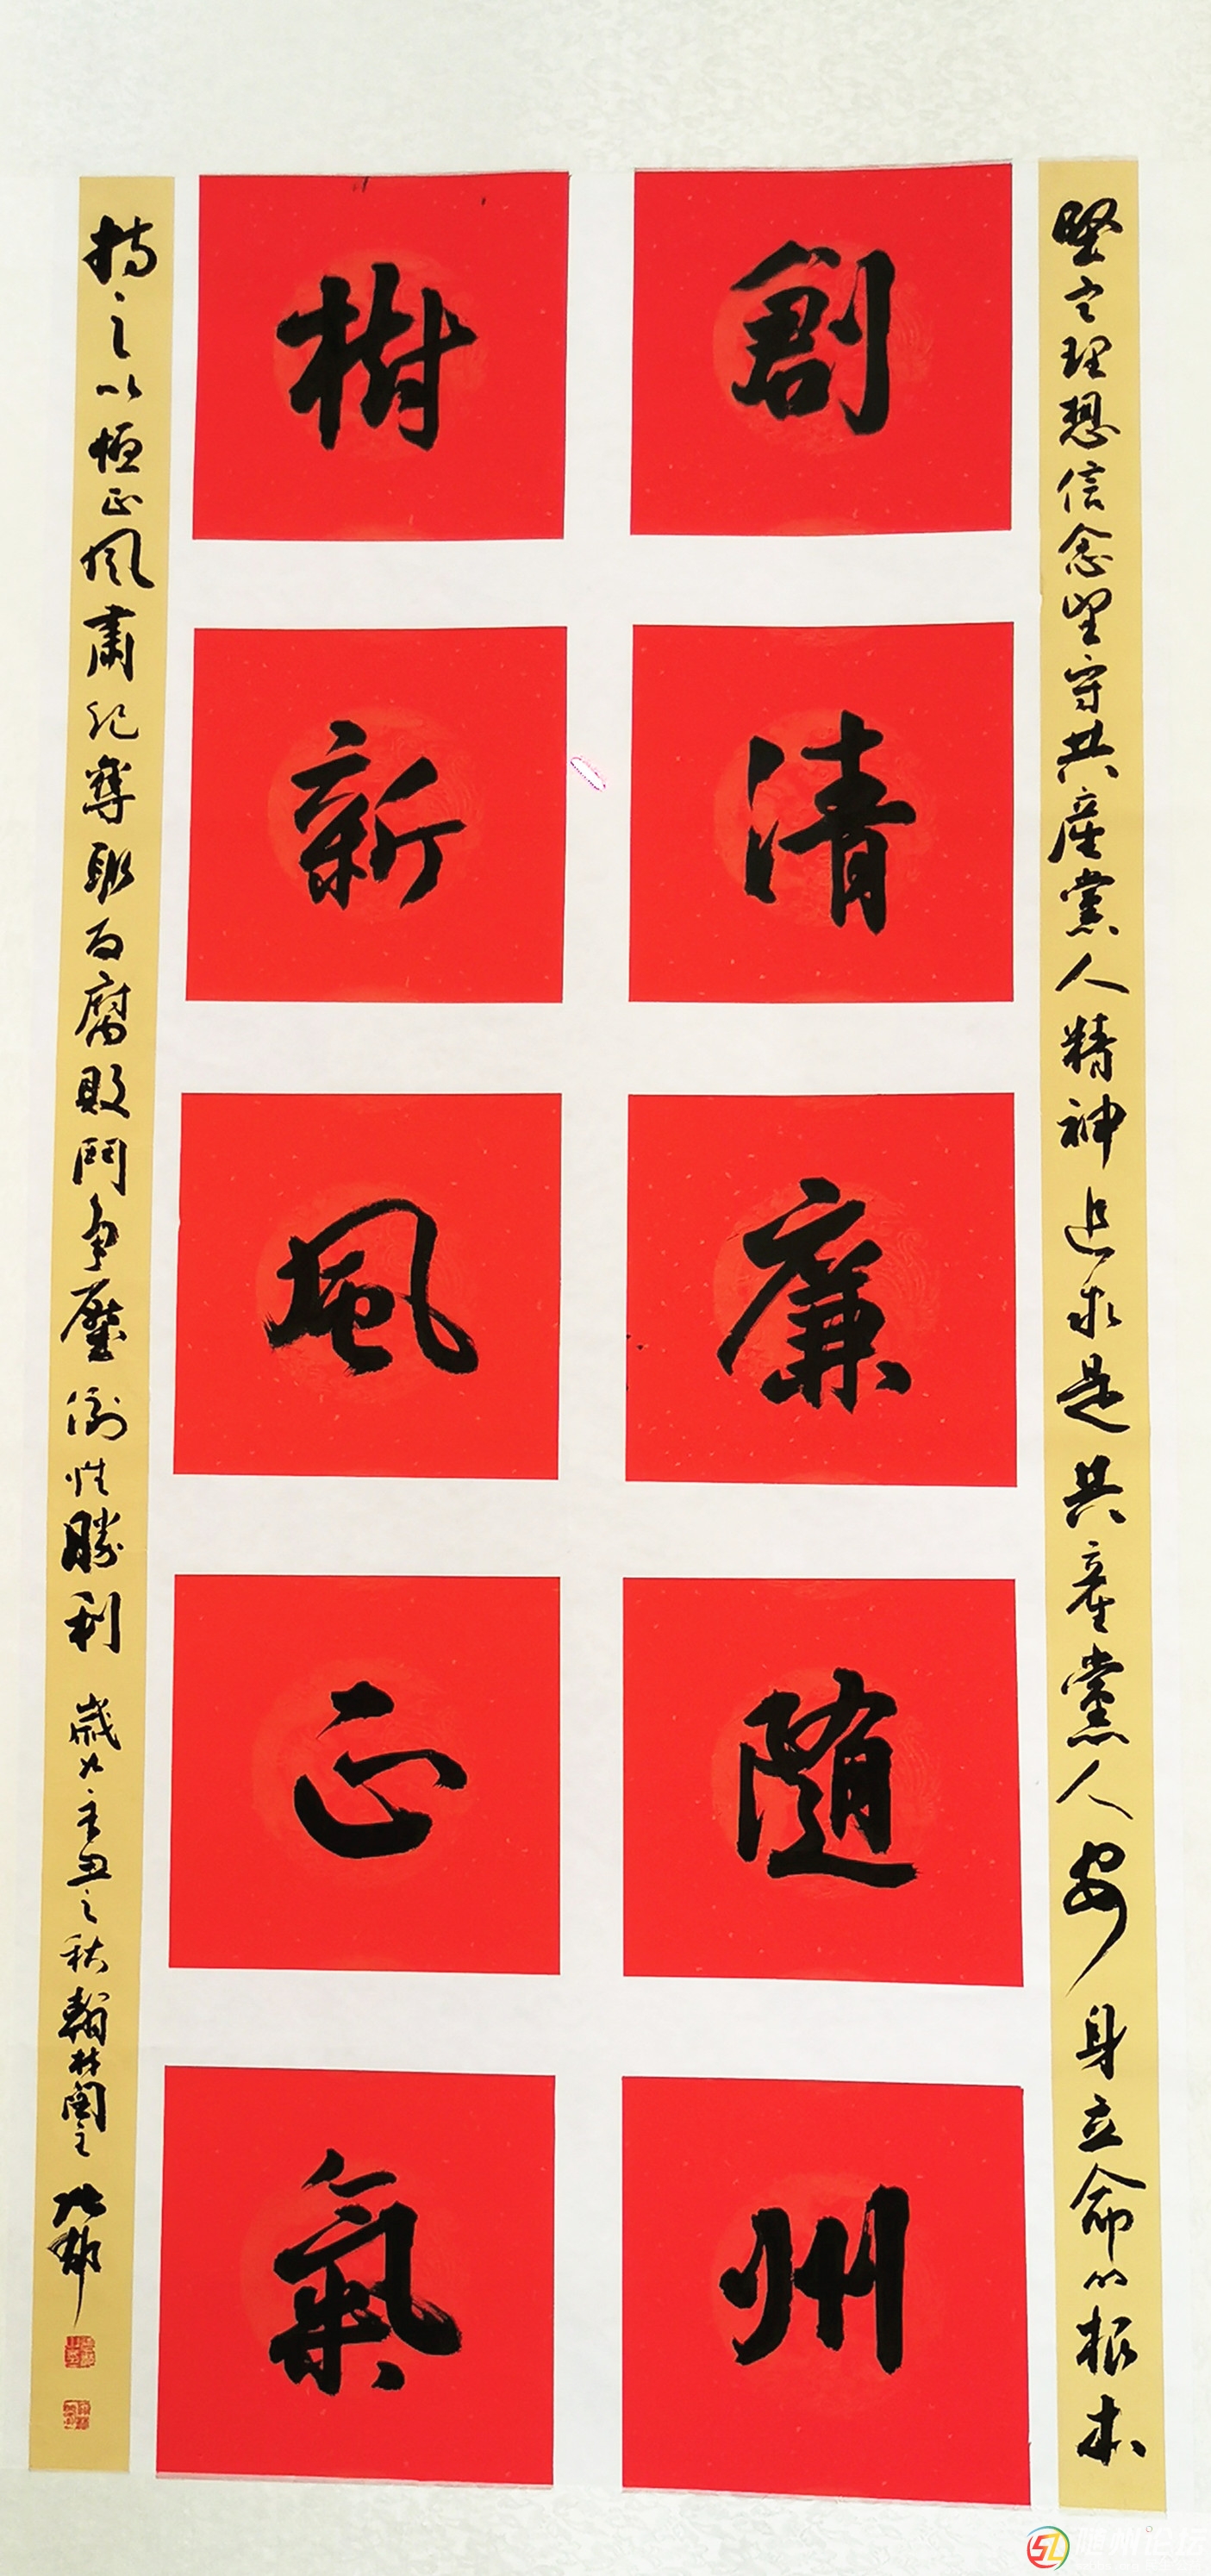 堅定理想信念堅守共產黨人精神追求是共產黨人安身立命的根本
創清廉隨州
樹新風正氣
持之以恒正風肅紀奪取反腐敗鬥爭壓倒性勝利
歲次辛丑之秋翰林閣主
随州论坛